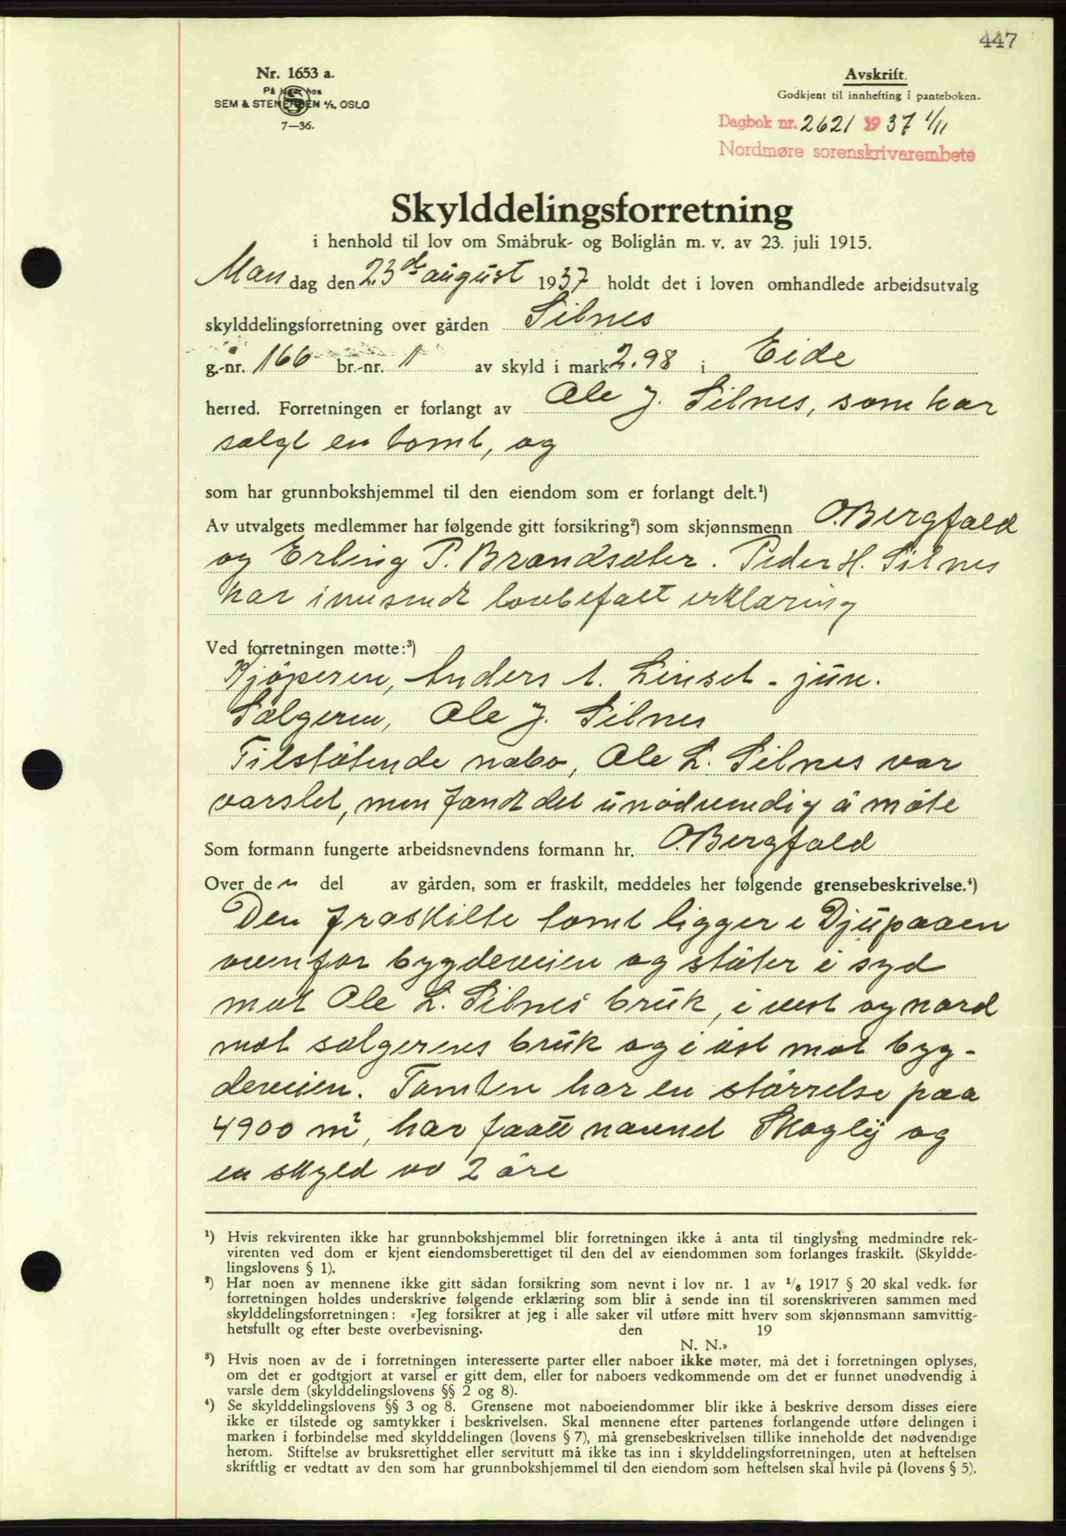 447
Nr. 1653 a.
På lager hos
SEM & STENERSEN A/S, OSLO
7—36.
Avskrift.
Godkjent til innhefting i panteboken.
Dagbok nr. 2621 1937 1/11
Nordmøre sorenskrivarembete
Skylddelingsforretning
i henhold til lov om Småbruk- og Boliglån m. v. av 23. juli 1915.
Man dag den 23de august 1937 holdt det i loven omhandlede arbeidsutvalg
skylddelingsforretning over gården Silnes
g.-nr. 166 br.-nr. 1 av skyld i mark 2.98 i Eide
herred. Forretningen er forlangt av Ole J. Silnes, som har
solgt en tomt, og
som har grunnbokshjemmel til den eiendom som er forlangt delt.¹)
Av utvalgets medlemmer har følgende gitt forsikring²) som skjønnsmenn O. Bergfald
og Erling P. Brandsæter. Peder H. Silnes
har innsendt lovbefalt erklæring
Ved forretningen møtte:³)
Kjöperen, Anders A. Linset - jun.
Sælgeren, Ole J. Silnes
Tilstøtende nabo, Ole L. Silnes var
varslet, men fandt det unødvendig å møte
Som formann fungerte arbeidsnevndens formann hr. O. Bergfald
Over de n del av gården, som er fraskilt, meddeles her følgende grensebeskrivelse.⁴)
Den fraskilte tomt ligger i Djupaaen
ovenfor bygdeveien og støter i syd
mot Ole L. Silnes bruk, i vest og nord
mot sælgerens bruk og i øst mot byg-
deveien. Tomten har en størrelse paa
4900 m², har faatt navnet Skogly og
en skyld av 2 øre
¹) Hvis rekvirenten ikke har grunnbokshjemmel blir forretningen ikke å anta til tinglysing medmindre rek-
virenten ved dom er kjent eiendomsberettiget til den del av eiendommen som forlanges fraskilt. (Skyldde-
lingslovens § 1).
²) Har noen av mennene ikke gitt sådan forsikring som nevnt i lov nr. 1 av 1/6 1917 § 20 skal vedk. før
forretningen holdes underskrive følgende erklæring som blir å sende inn til sorenskriveren sammen med
skylddelingsforretningen: «Jeg forsikrer at jeg i alle saker vil utføre mitt hverv som skjønnsmann samvittig-
hetsfullt og efter beste overbevisning. den 19
N. N.»
³) Hvis noen av de i forretningen interesserte parter eller naboer ikke møter, må det i forretningen oplyses,
om det er godtgjort at varsel er gitt dem, eller for naboers vedkommende om det er funnet unødvendig å
varsle dem (skylddelingslovens §§ 2 og 8).
⁴) Se skylddelingslovens §§ 3 og 8. Grensene mot naboeiendommer blir ikke å beskrive dersom disses eiere
ikke er tilstede og samtykker i beskrivelsen. Skal mennene efter partenes forlangende utføre delingen i
marken i forbindelse med skylddelingen (lovens § 7), må grensebeskrivelsen tillike inneholde det nødvendige
herom. Stiftelse av bruksrettighet eller servitutt må ikke tas inn i skylddelingsforretningen, uten at heftelsen
skriftlig er vedtatt av den som har grunnbokshjemmel til den eiendom som heftelsen skal hvile på (lovens § 5).